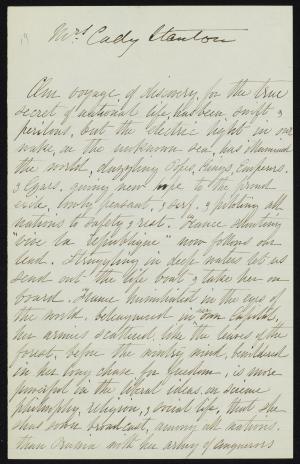 Mrs Cady Stanton
Our voyage of discovery, for the true
secret of national life, has been, swift, &
perilous, but the electric light in our
wake, on the unknown sea, has illumined
the world, dazzling Popes, Kings, Emperors.
& Czars. giving new hope to the proud
exile, lowly peasant, & serf, & piloting all
nations to safety & rest. France shouting
"vive la republique" now follows our
lead. Struggling in deep waters let us
send out the life boat & take her on
board. France humiliated in the eyes of
the world, beleaguered in her own Capitol,
her armies scattered, like the leaves of the
forest, before the wintry wind, bewildered
in her long chase for freedom, is more
powerful in the liberal ideas, on science
philosophy, religion, & social life, that she
has sown broadcast, among all nations.
than Prussia with her army of conquerors